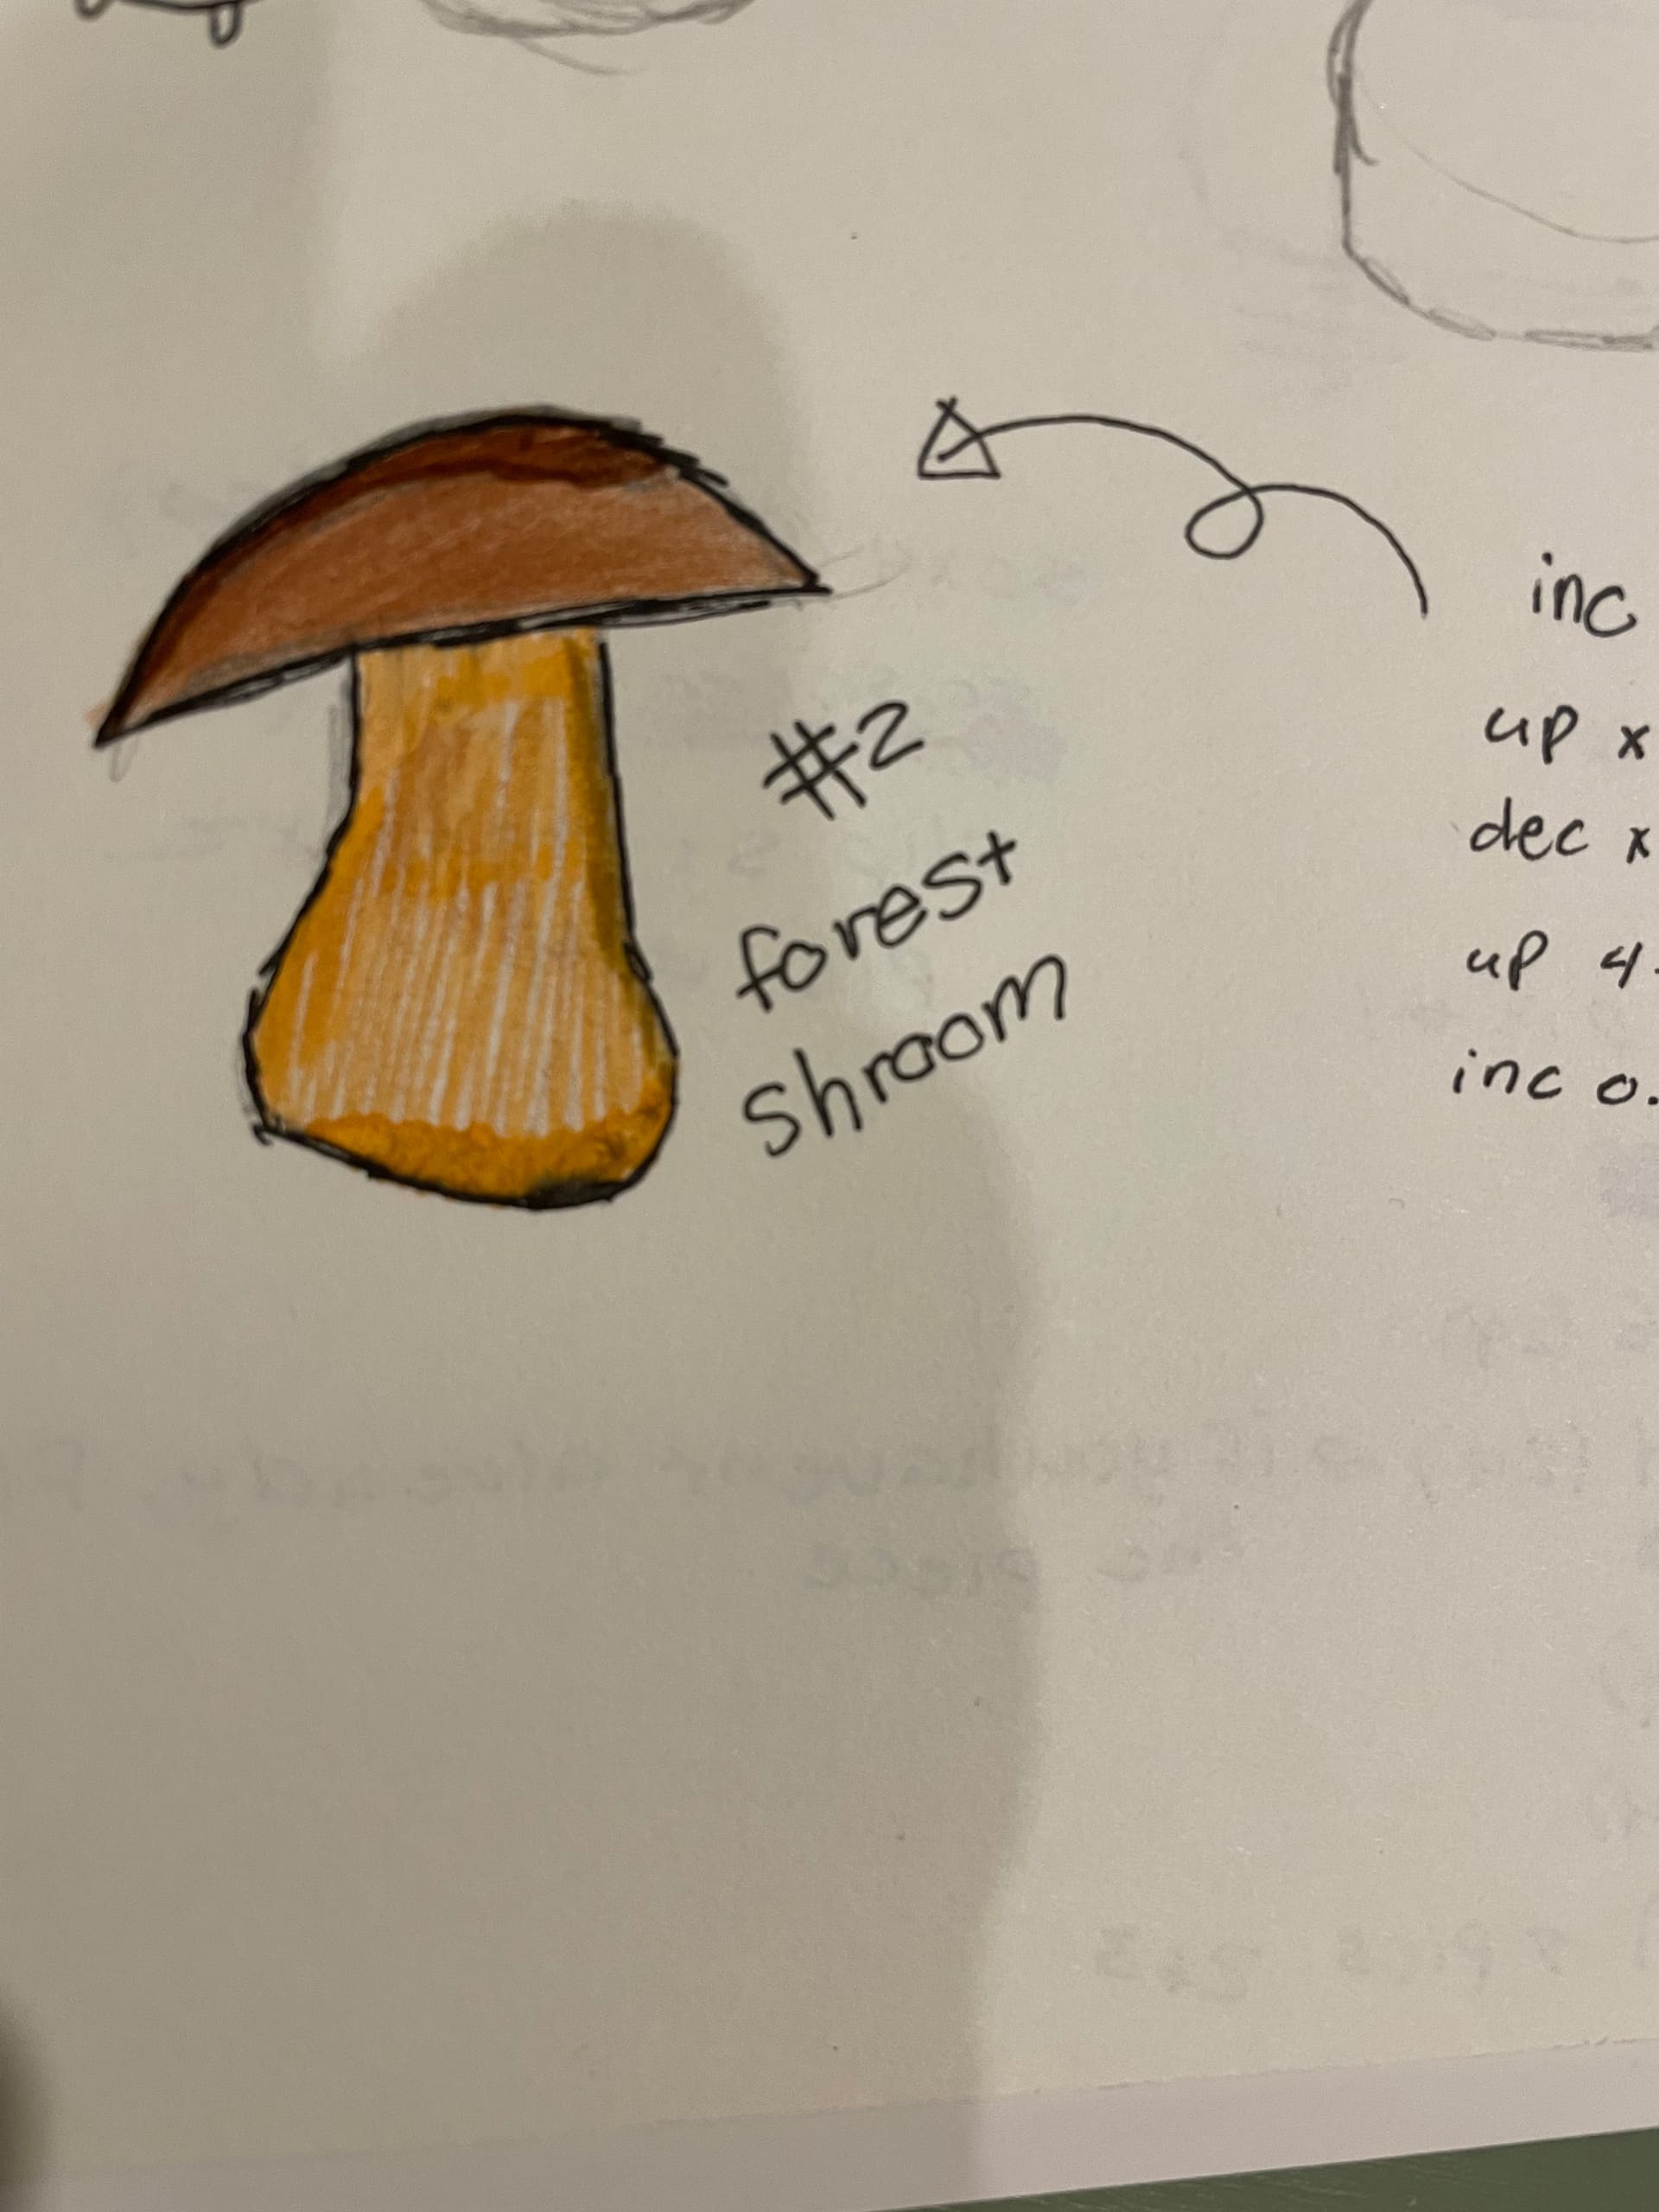 #2
forest
shroom
inc
up x
dec x
up 4.
inc 0.